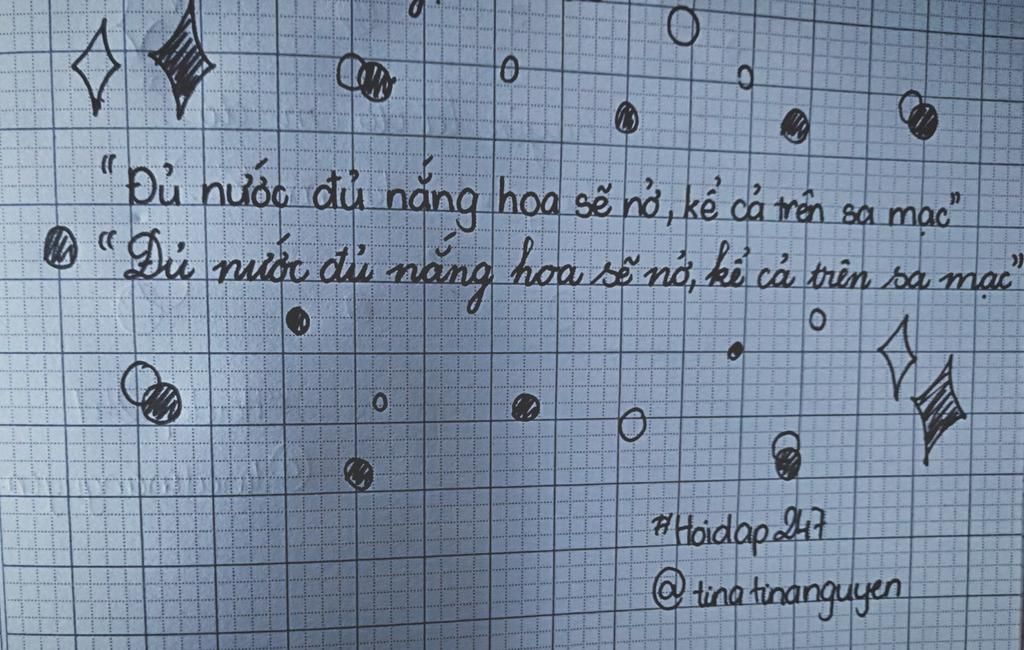 "Đủ nước đủ nắng hoa sẽ nở, kể cả trên sa mạc"
"Đủ nước đủ nắng hoa sẽ nở, kể cả trên sa mạc"
#Hoidap247
@tinatinanguyen